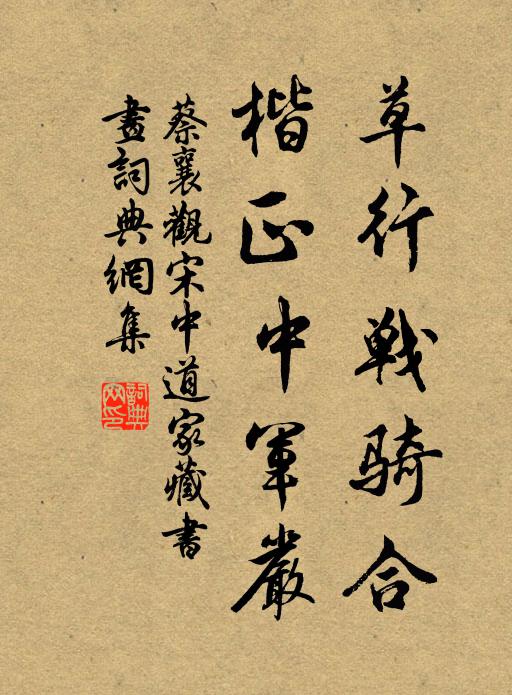 草行戰騎合
楷正中軍嚴
蔡襄觀宋中道家藏書
畫詞典網集
詞典
网印